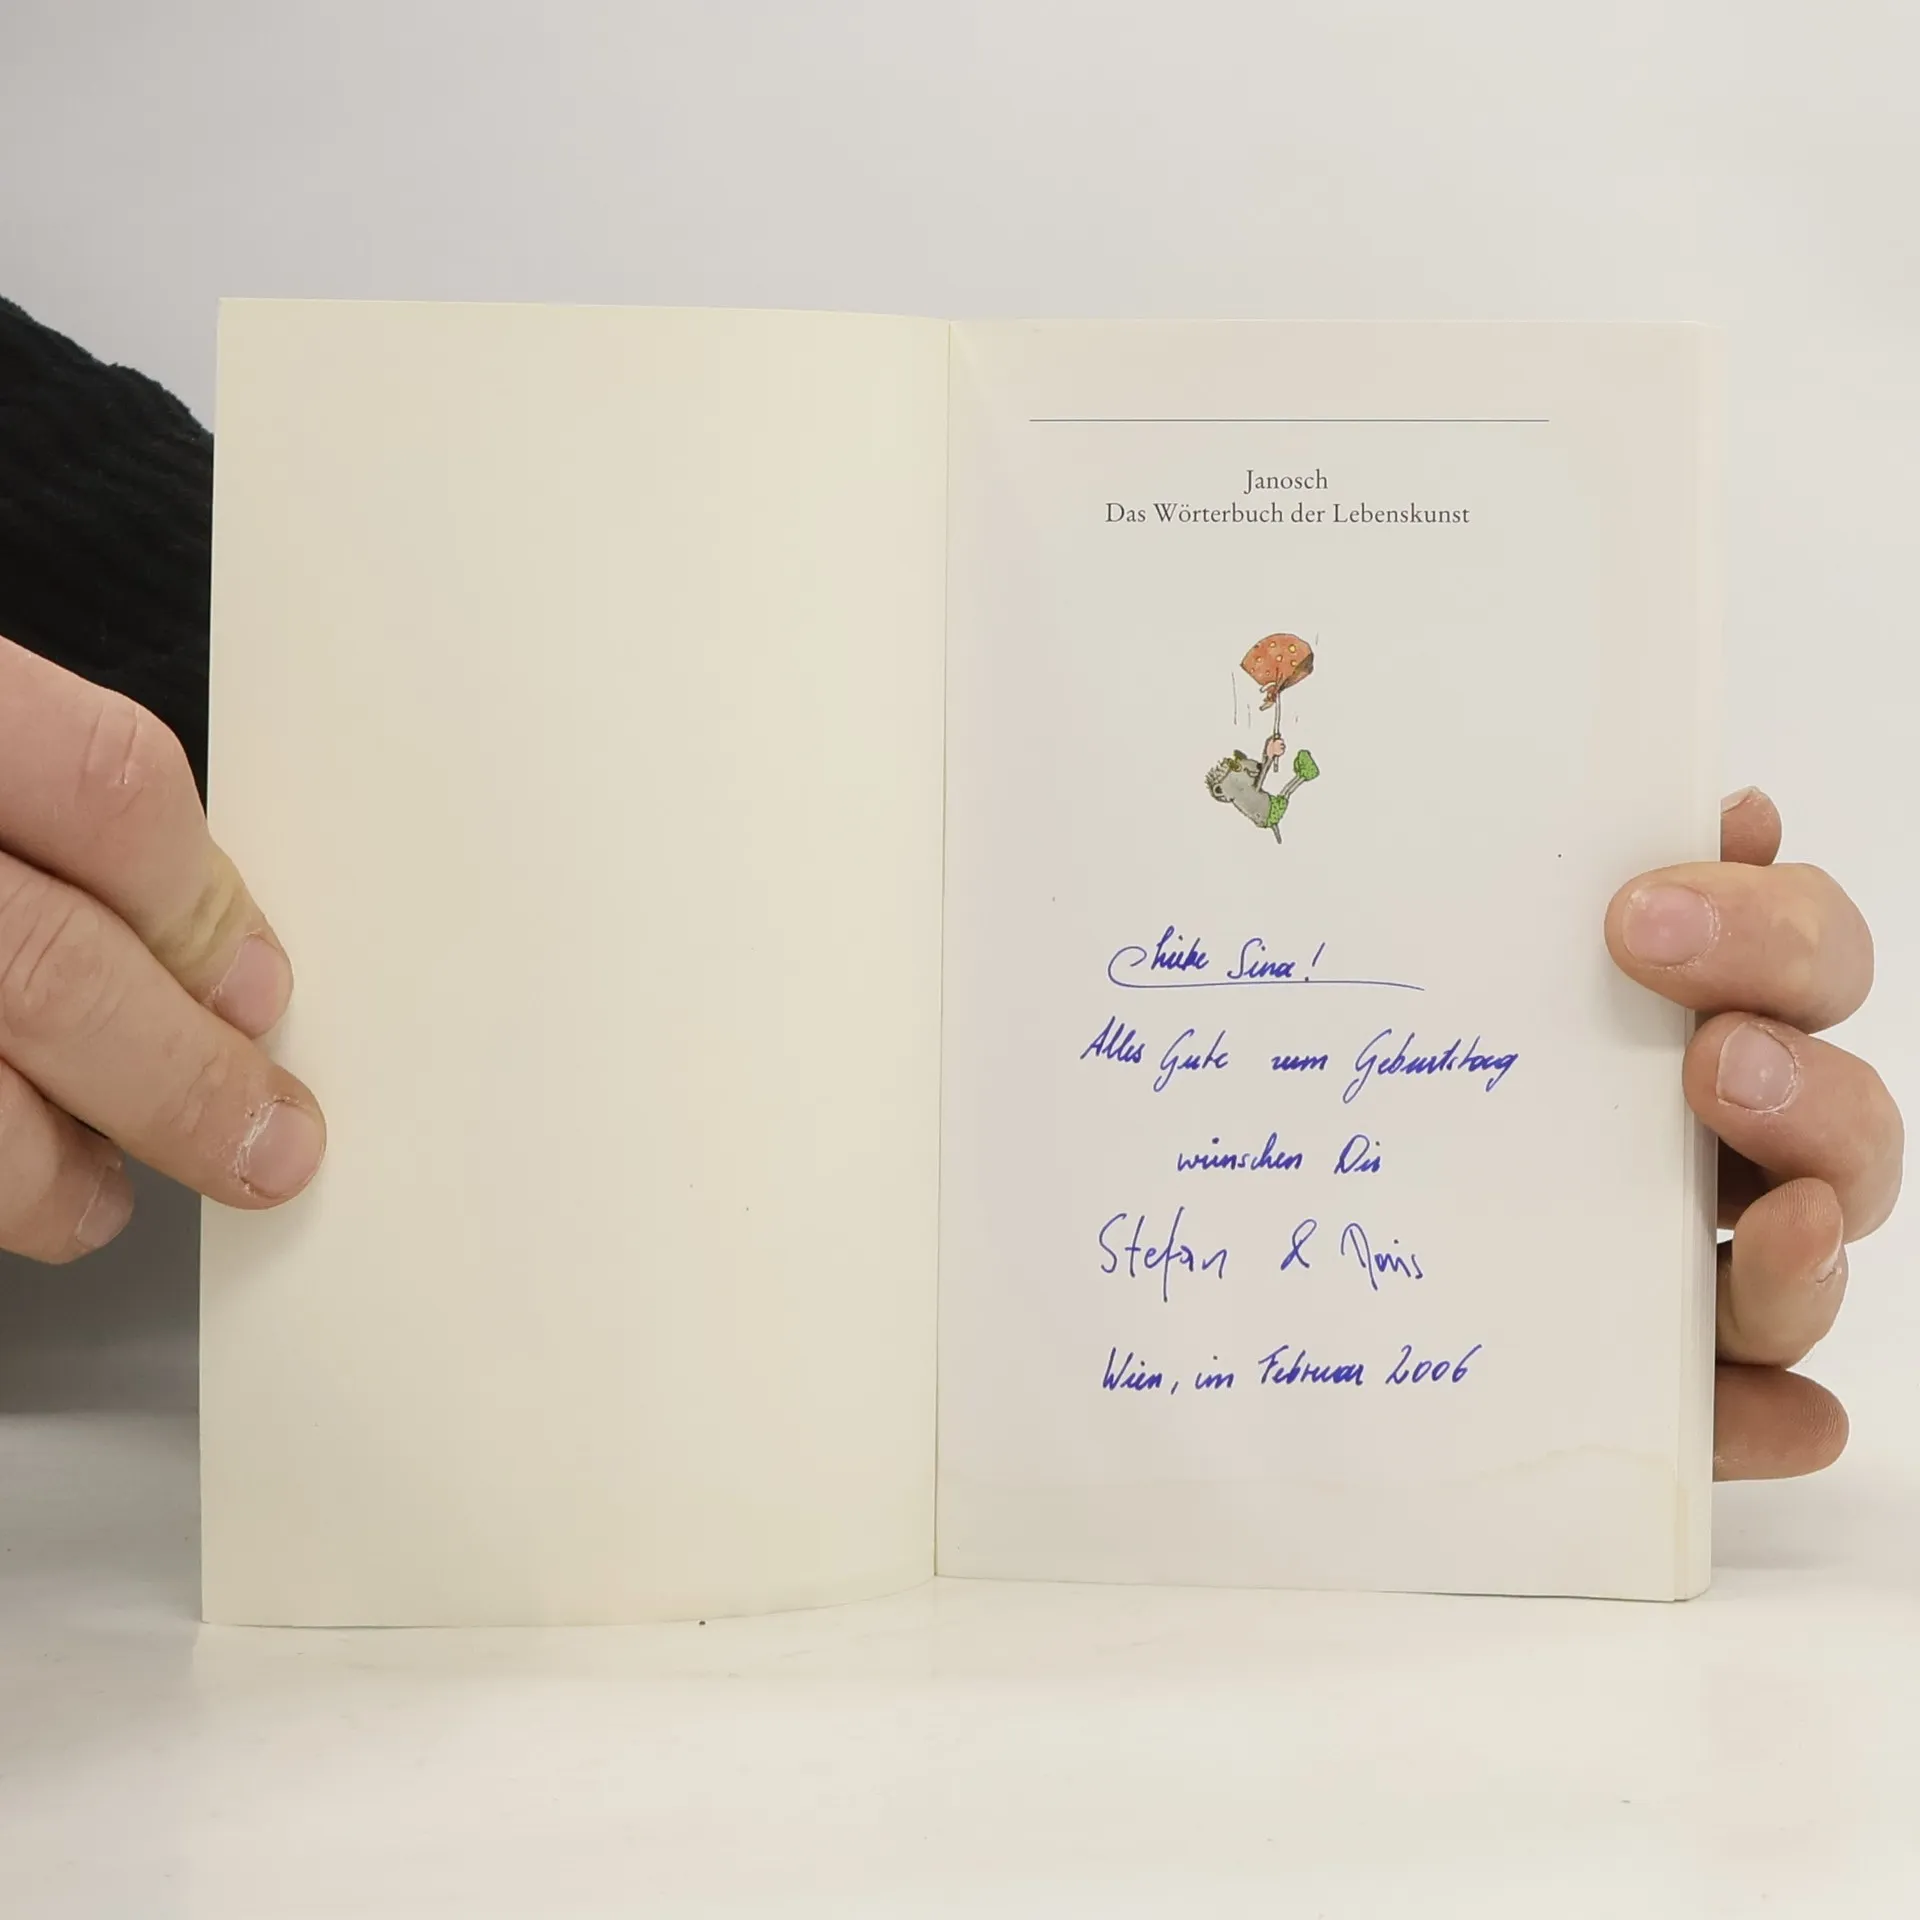 Janosch
Das Wörterbuch der Lebenskunst
Liebe Sina!
Alles Gute zum Geburtstag
wünschen Dir
Stefan & Doris
Wien, im Februar 2006